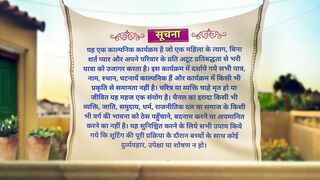 सूचना
यह एक काल्पनिक कार्यक्रम है जो एक महिला के त्याग, बिना
शर्त प्यार और अपने परिवार के प्रति अटूट प्रतिबद्धता से भरी
यात्रा को उजागर करता है। इस कार्यक्रम में दर्शाये गये सभी पात्र,
नाम, स्थान, घटनायें काल्पनिक हैं और कार्यक्रम में किसी भी
प्रकृति से समानता नहीं है। चरित्र या व्यक्ति चाहे मृत हो या
जीवित यह महज एक संयोग है। चैनल का इरादा किसी भी
व्यक्ति, जाति, समुदाय, धर्म, राजनीतिक दल या समाज के किसी
भी वर्ग की भावना को ठेस पहुँचाने, बदनाम करने या अपमानित
करने का नहीं है। यह सुनिश्चित करने के लिये सभी उपाय किये
गये कि शूटिंग की पूरी प्रक्रिया के दौरान बच्चों के साथ कोई
दुर्व्यवहार, उपेक्षा या शोषण न हो।